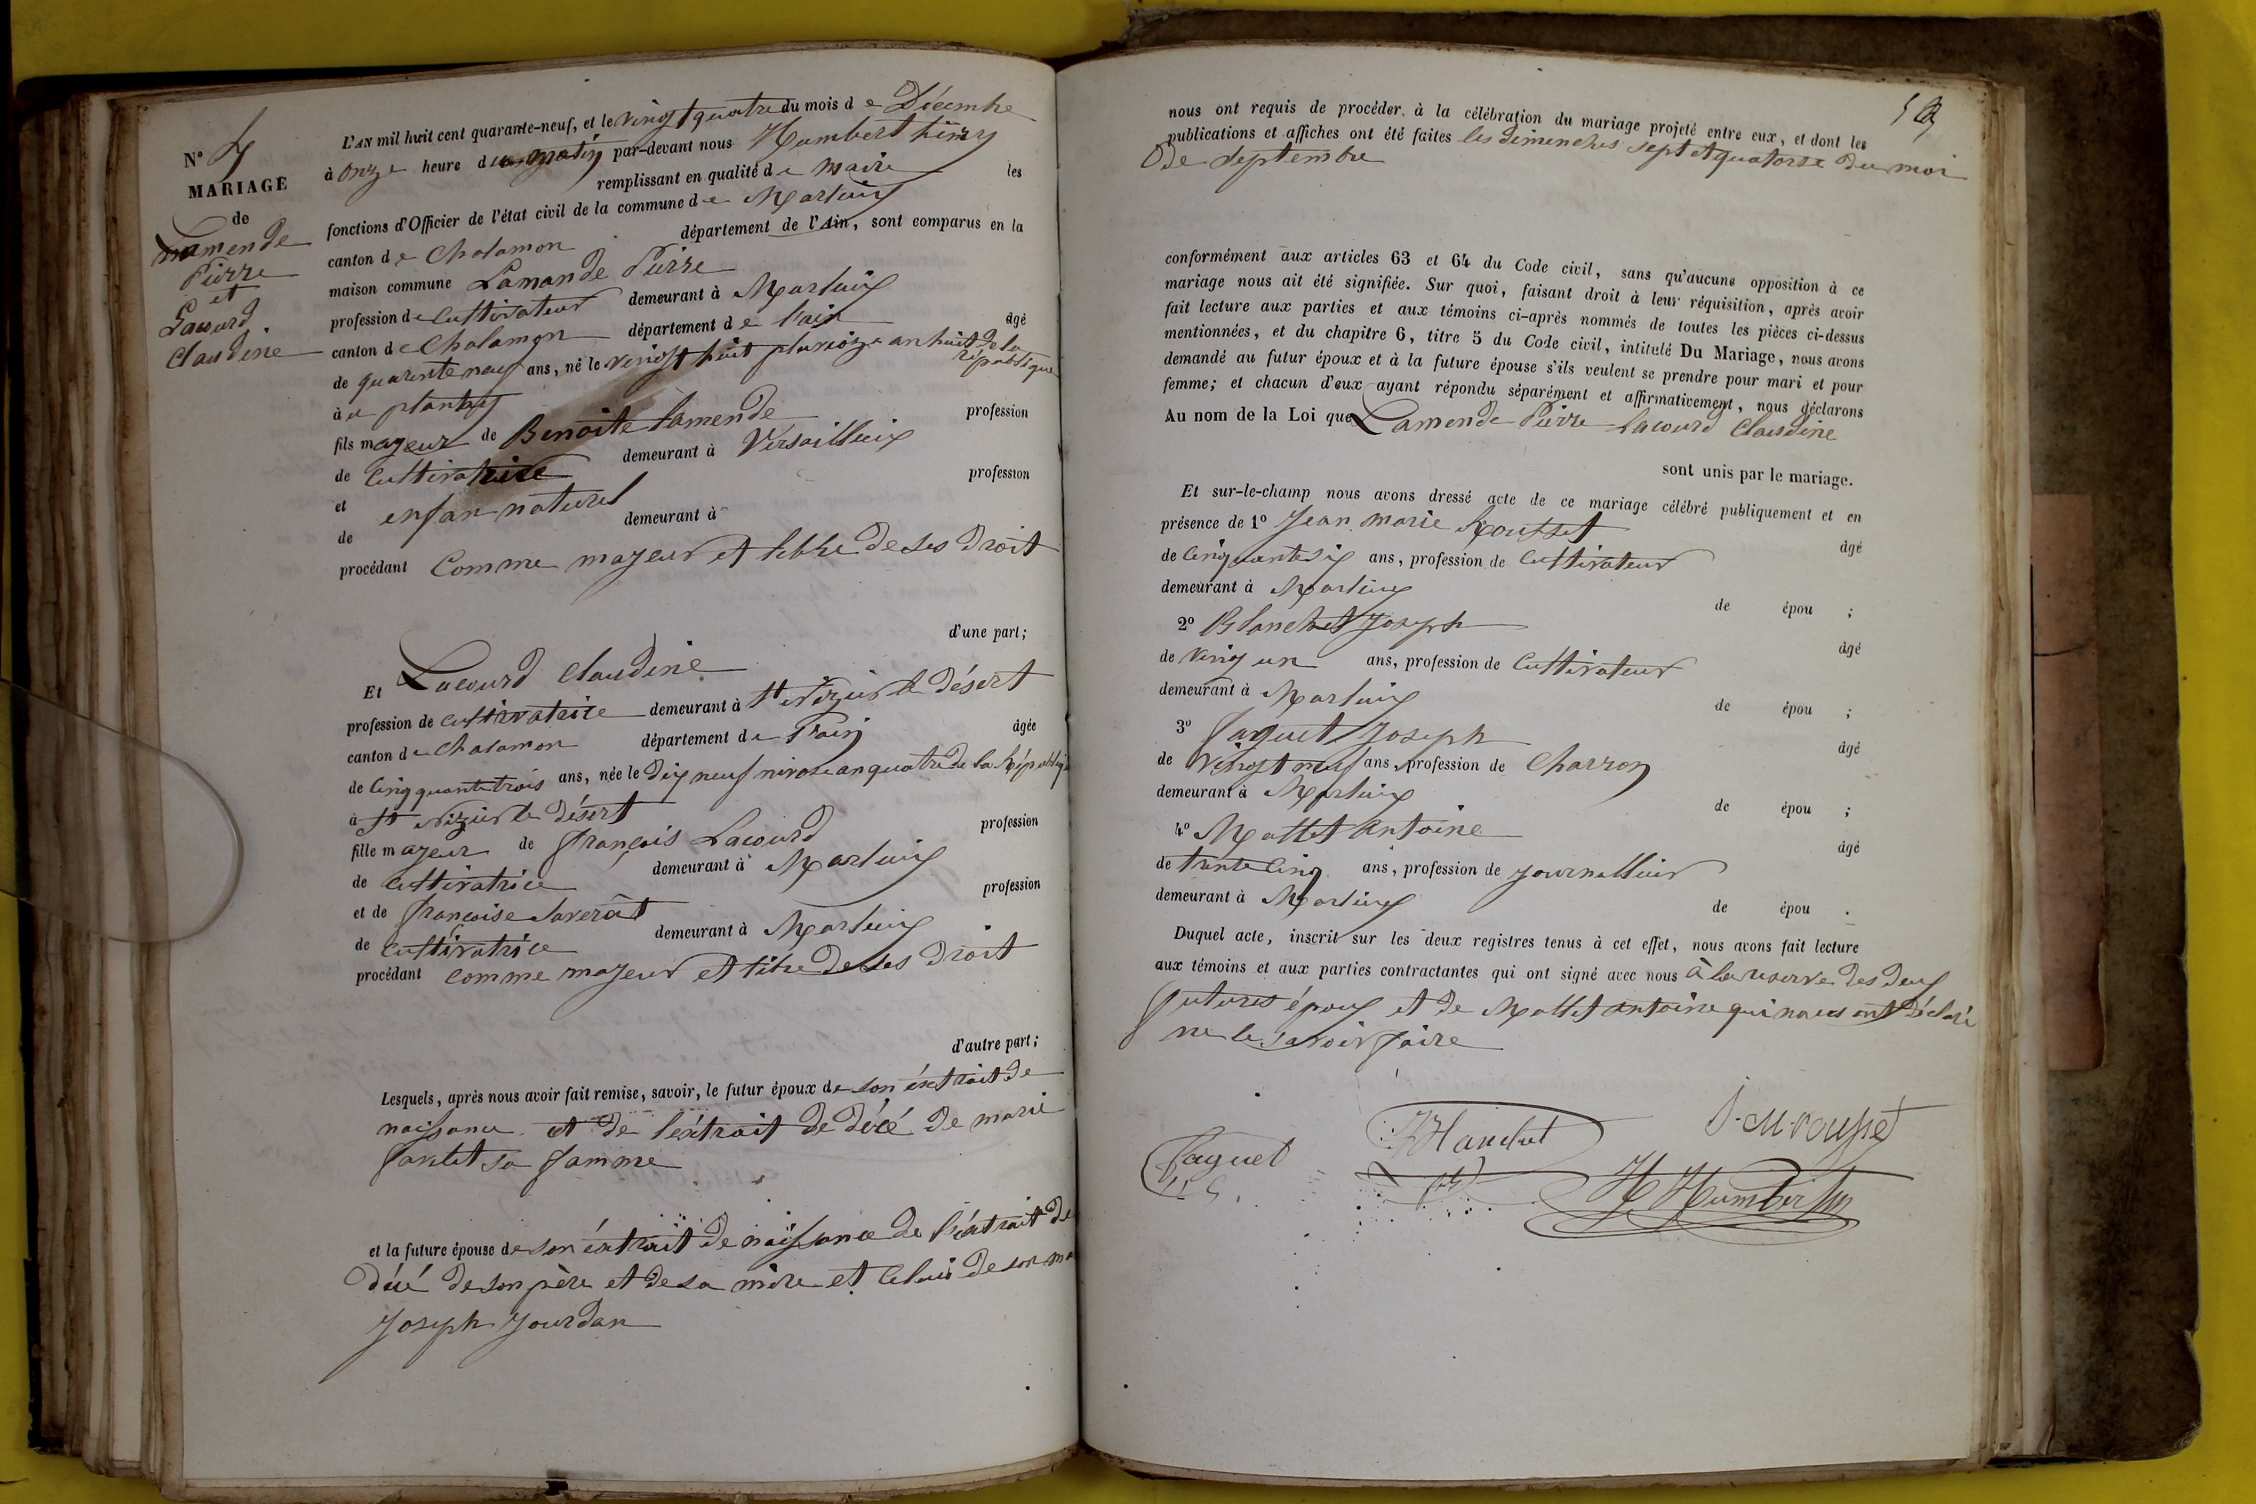 L'AN mil huit cent quarante-neuf, et le vingt quatre du mois de Décembre
N° 7
à onze heure du matin par-devant nous Humbert hinry
MARIAGE
remplissant en qualité de maire les
de
fonctions d'Officier de l'état civil de la commune de Marlieux
Lamende
canton de Chalamon département de l'Ain, sont comparus en la
Pierre
maison commune Lamande Pierre
et
profession de Cultivateur demeurant à Marlieux
Lacourd
canton de Chalamon département de l'ain âgé
Claudine
de quarente neuf ans, né le vingt huit pluvioze an huit de la républsque
à u plantay
fils majeur de Benoîte Lamende profession
de Cultivatrice demeurant à Versaillieux
et enfan naturel profession
de demeurant à
procédant Comme majeur et libbre de ses droit
d'une part;
Et Lacourd Claudine
profession de Cultivatrice demeurant à St Nizier le désert
canton de Chalamon département de l'ain âgée
de Cinqquante trois ans, née le dix neuf nivose an quatre de la Républiq
à St Nizier le désert
fille majeur de françois Lacourd profession
de Cultivatrice demeurant à Marlieux
et de françoise Saverat profession
de Cultivatrice demeurant à Marlieux
procédant comme majeur et libre de ses droit
d'autre part;
Lesquels, après nous avoir fait remise, savoir, le futur époux de son éxtrait de
naissance et de l'éxtrait de décé de marie
sa famme
et la future épouse de son éxtrait de naissance de l'éxtrait de
décé de son père et de sa mère et celui de son ma
Joseph Jourdan
nous ont requis de procéder à la célébration du mariage projeté entre eux, et dont les
publications et affiches ont été faites les dimenches sept et quatorze du moi
de septembre
conformément aux articles 63 et 64 du Code civil, sans qu'aucune opposition à ce
mariage nous ait été signifiée. Sur quoi, faisant droit à leur réquisition, après avoir
fait lecture aux parties et aux témoins ci-après nommés de toutes les pièces ci-dessus
mentionnées, et du chapitre 6, titre 5 du Code civil, intitulé Du Mariage, nous avons
demandé au futur époux et à la future épouse s'ils veulent se prendre pour mari et pour
femme; et chacun d'eux ayant répondu séparément et affirmativement, nous déclarons
Au nom de la Loi que Lamende Pierre Lacourd Claudine
sont unis par le mariage.
Et sur-le-champ nous avons dressé acte de ce mariage célébré publiquement et en
présence de 1° Jean marie Rousset âgé
de Cinquantesix ans, profession de Cultivateur
demeurant à Marlieux de épou ;
2° Blanchet Joseph âgé
de Vingt un ans, profession de Cultivateur
demeurant à Marlieux de épou ;
3° Faguet Joseph âgé
de Vingt neuf ans, profession de Charron
demeurant à Marlieux de épou ;
4° Mottet Antoine âgé
de trente Cinq ans, profession de journallier
demeurant à Marlieux de épou .
Duquel acte, inscrit sur les deux registres tenus à cet effet, nous avons fait lecture
aux témoins et aux parties contractantes qui ont signé avec nous à la reserve des deux
futures époux et de Mottet antoine qui nous ont déclaré
ne le savoir faire
J. M. rousset
Faguet
H. Humbert